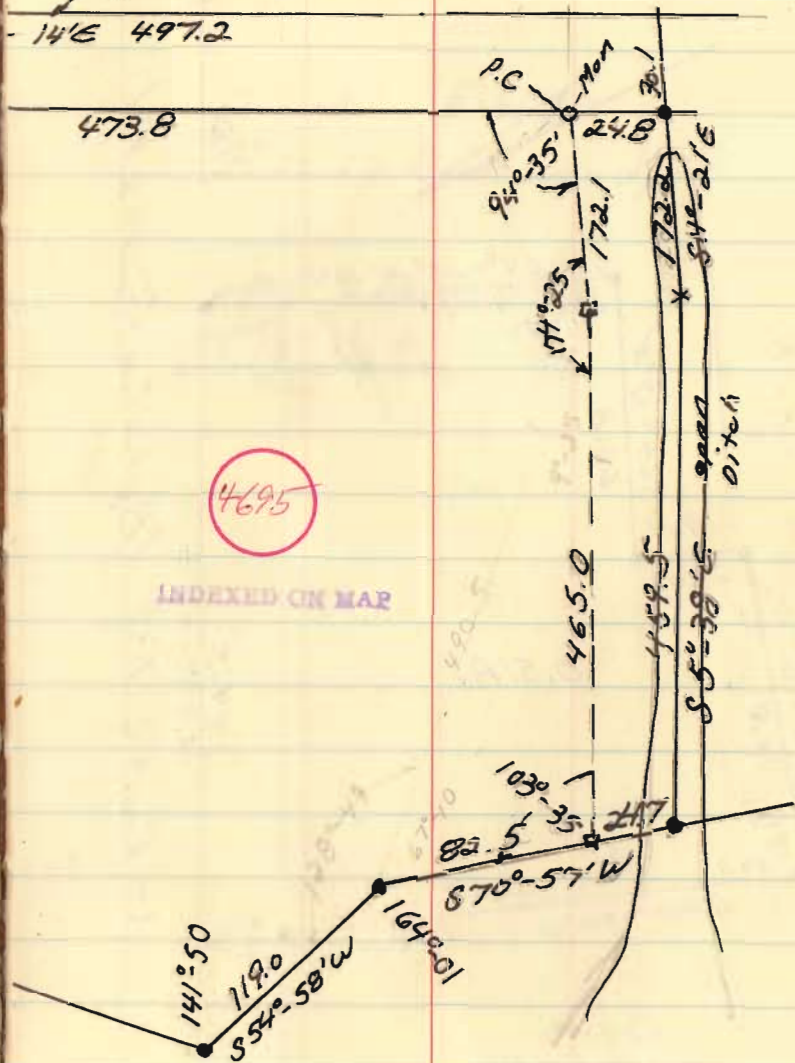 14'E 497.2
30.1
P.C
Mon
473.8
24.8
94°-35'
172.1
172.2
S4°-21'E
174°-25
open
Ditch
4695
INDEXED ON MAP
465.0
459.5
S5°-38'E
103°-35
24.7
82.5'
S70°-57'W
164°-01
141°50
119.0
S54°-58'W